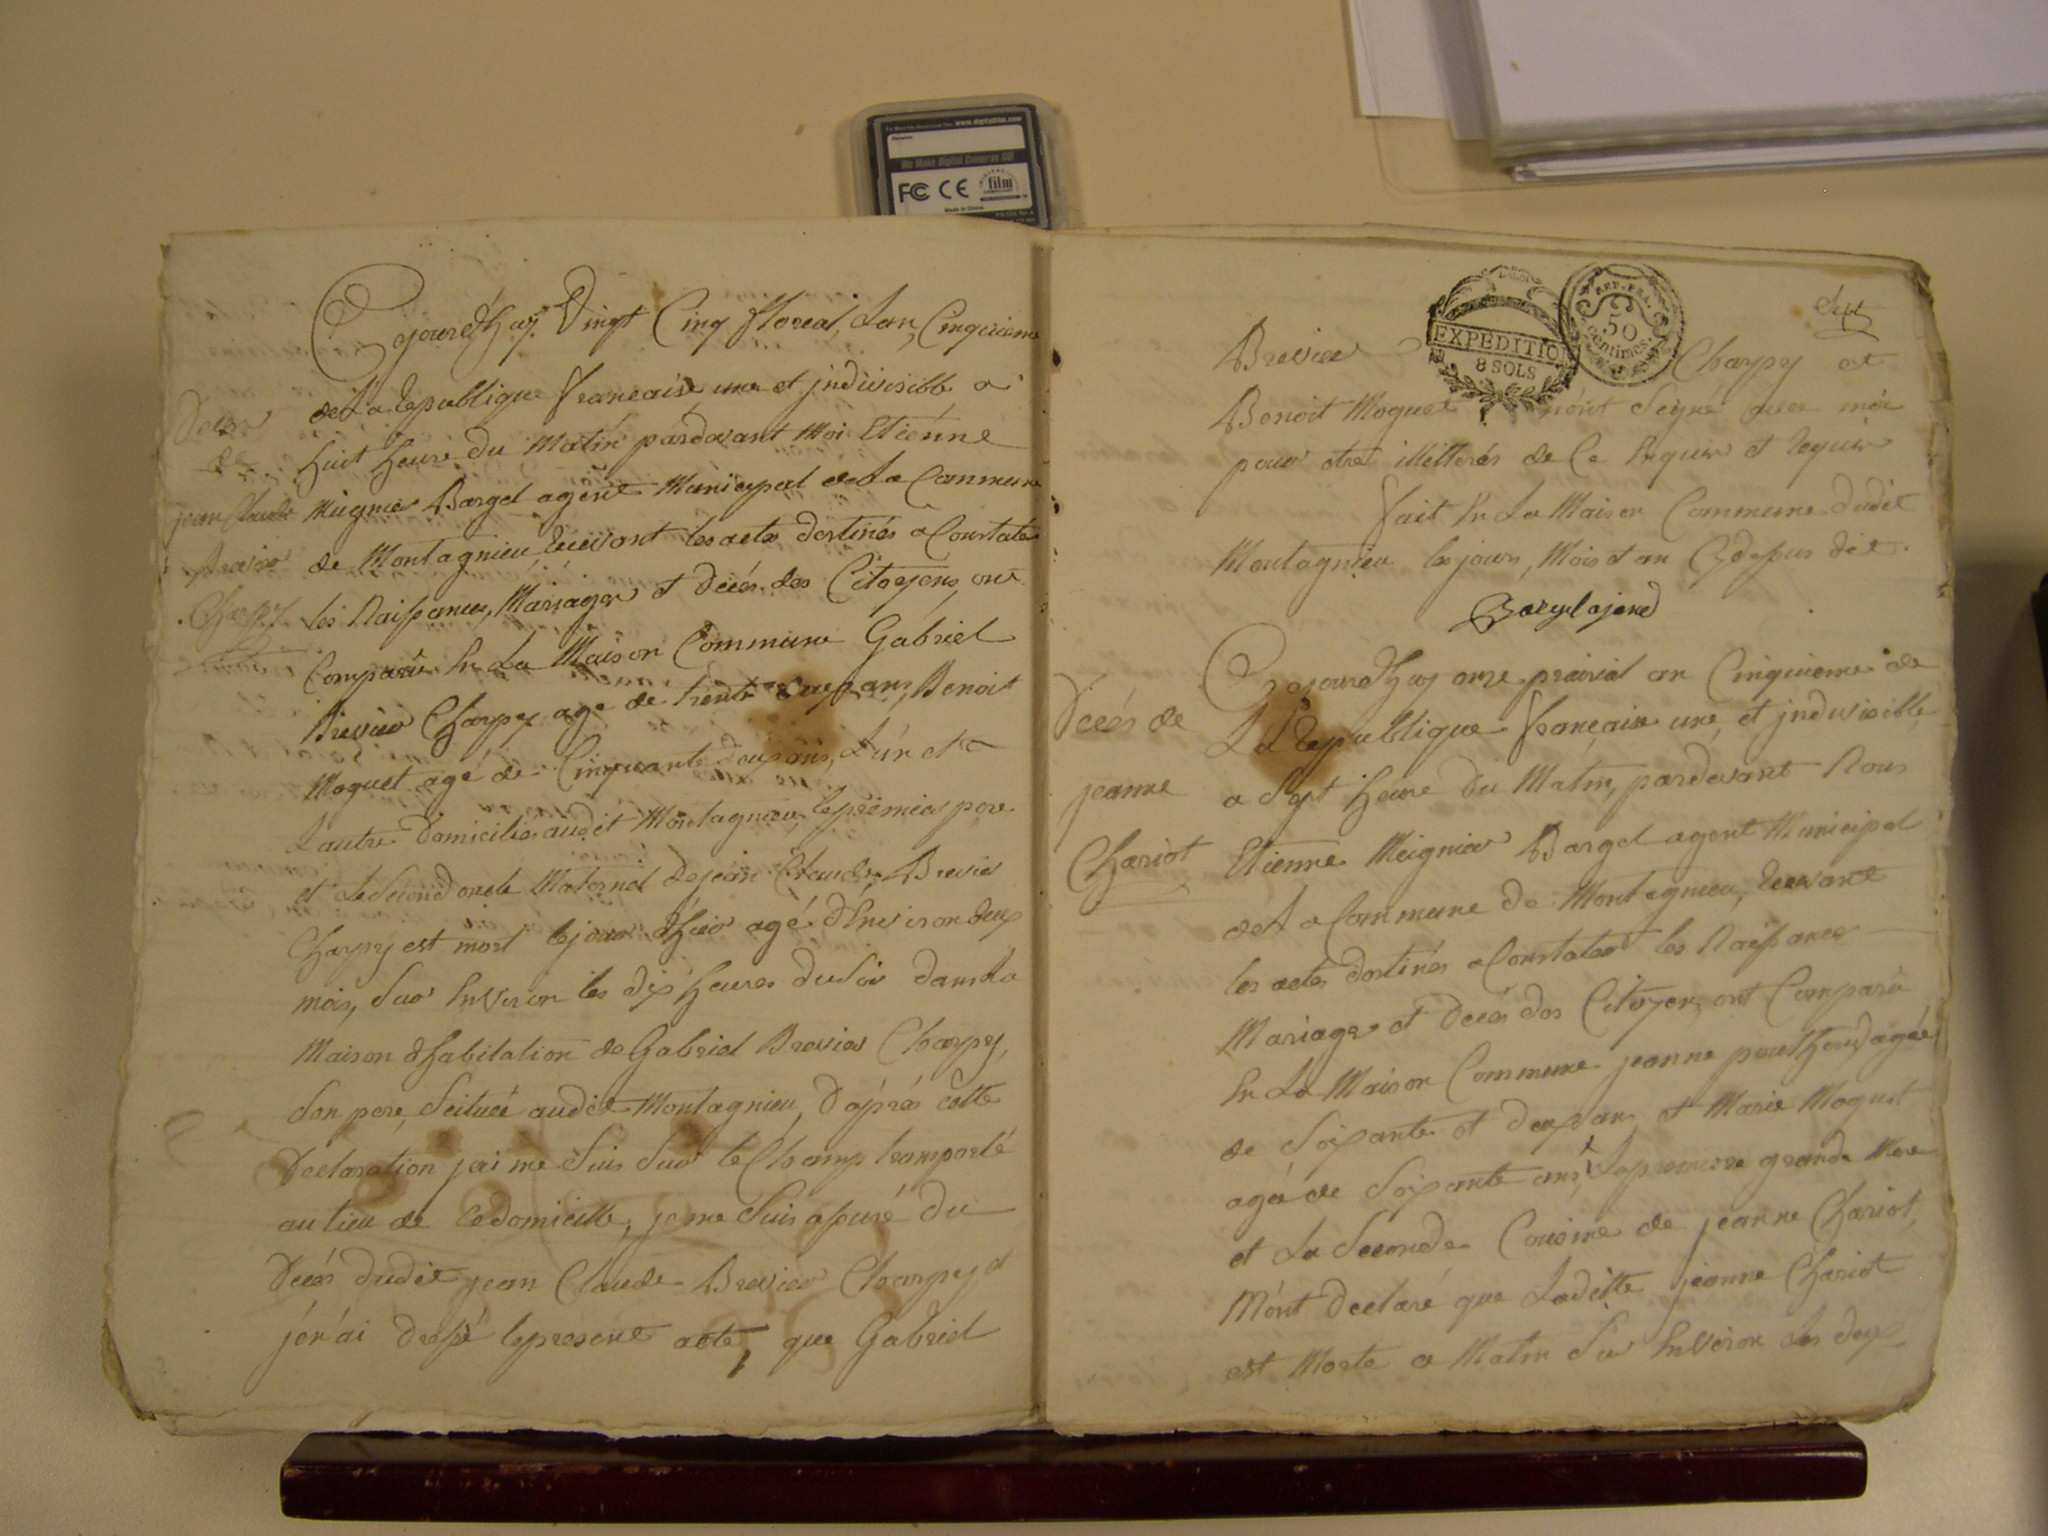 www.digitalfilm.com
We Make Digital Cameras GO!
FC CE
film
Made in China
Cejourd'huy Vingt Cinq floreal, L'an Cinquieme
de La Republique francaise une et jndivisible a
huit heure du Matin pardevant Moi Etiénne
Mugnier Bargel agent Municipal de La Commune
de Montagnieu, Recevant les acte destinés a Constater
les Naissances, Mariages et Décés des Citoyens, ont
Comparu En La Maison Commune Gabriel
Brevier Charpy age de trente ans, Benoit
Moquet agé de Cinquante deux ans, L'un et
L'autre Domiciliés audit Montagnieu, le premier pere
et Le Second oncle Maternel de jean Claude Brevier
Charpy est mort le jour d'hier agé d'Environ deux
mois, Sur Environ les dix heures du Soir dans La
Maison d'habitation de Gabriel Brevier Charpy,
Son pere, Scituée audit Montagnieu, D'aprés Cette
Declaration j'ai me Suis Sur le Champ transporté
au lieu de Ce domicille, je me Suis assuré du
Décés dudit jean Claude Brevier Charpy et
j'en ai dressé le present acte, que Gabriel
Deces
de
jean Claude
Brevier
Charpy
EXPEDITION
8 SOLS
REP. FRA.
50
centimes.
Sept
Brevier Charpy et
Benoit Moquet n'ont Seigné avec moi
pour etre illitterés de Ce Enquis et Requis
fait En La Maison Commune dudit
Montagnieu les jours, Mois et an Cy depus dit
Bargel ajend
Décés de
jeanne
Chariot
Cejourd'huy onze prairial an Cinquieme de
La Republique francaise une, et jndivisible
a Sept heure du Matin, pardevant Nous
Etienne Meignier Bargel agent Municipal
de La Commune de Montagnieu, Recevant
les actes destinés a Constater les Naissances
Mariages et Décés des Citoyens, ont Comparu
En La Maison Commune jeanne agée
de Soixante et deux ans, et Marie Moquet
agée de Soixante ans, La premiere grande Mere
et La Seconde Cousine de jeanne Chariot,
M'ont declaré que Laditte jeanne Chariot
est Morte a Matin Sur Environ les deux